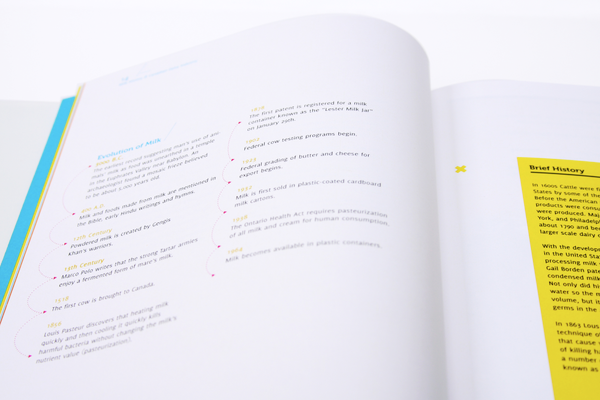 Evolution of Milk
The earliest record suggesting man's use of
milk as food was unearthed in a temple
in the Euphrates Valley near Babylon. An
archeologist found a mosaic frieze believed
to be about 5,000 years old.
Milk and foods made from milk are mentioned in
the Bible, early Hindu writings and hymns.
12th Century
Powdered milk is created by Gengis
Khan's warriors.
13th Century
Marco Polo writes that the strong Tartar armies
enjoy a fermented form of mare's milk.
The first cow is brought to Canada.
Louis Pasteur discovers that heating milk
quickly and then cooling it quickly kills
harmful bacteria without changing the milk's
nutrient value (pasteurization).
The first patent is registered for a milk
container known as the "Lester Milk Jar"
on January 29th.
Federal cow testing programs begin.
Federal grading of butter and cheese for
export begins.
Milk is first sold in plastic-coated cardboard
milk cartons.
The Ontario Health Act requires pasteurization
of all milk and cream for human consumption.
Milk becomes available in plastic containers.
Brief History
In 1600s Cattle were f
States by some of th
Before the American
products were consu
were produced. Maj
York, and Philadelp
about 1790 and bec
larger scale dairy
With the develop
in the United Stat
processing milk
Gail Borden pate
condensed milk
Not only did hi
water so the m
volume, but it
germs in the
In 1863 Louis
technique o
that cause
of killing ha
a number
known as